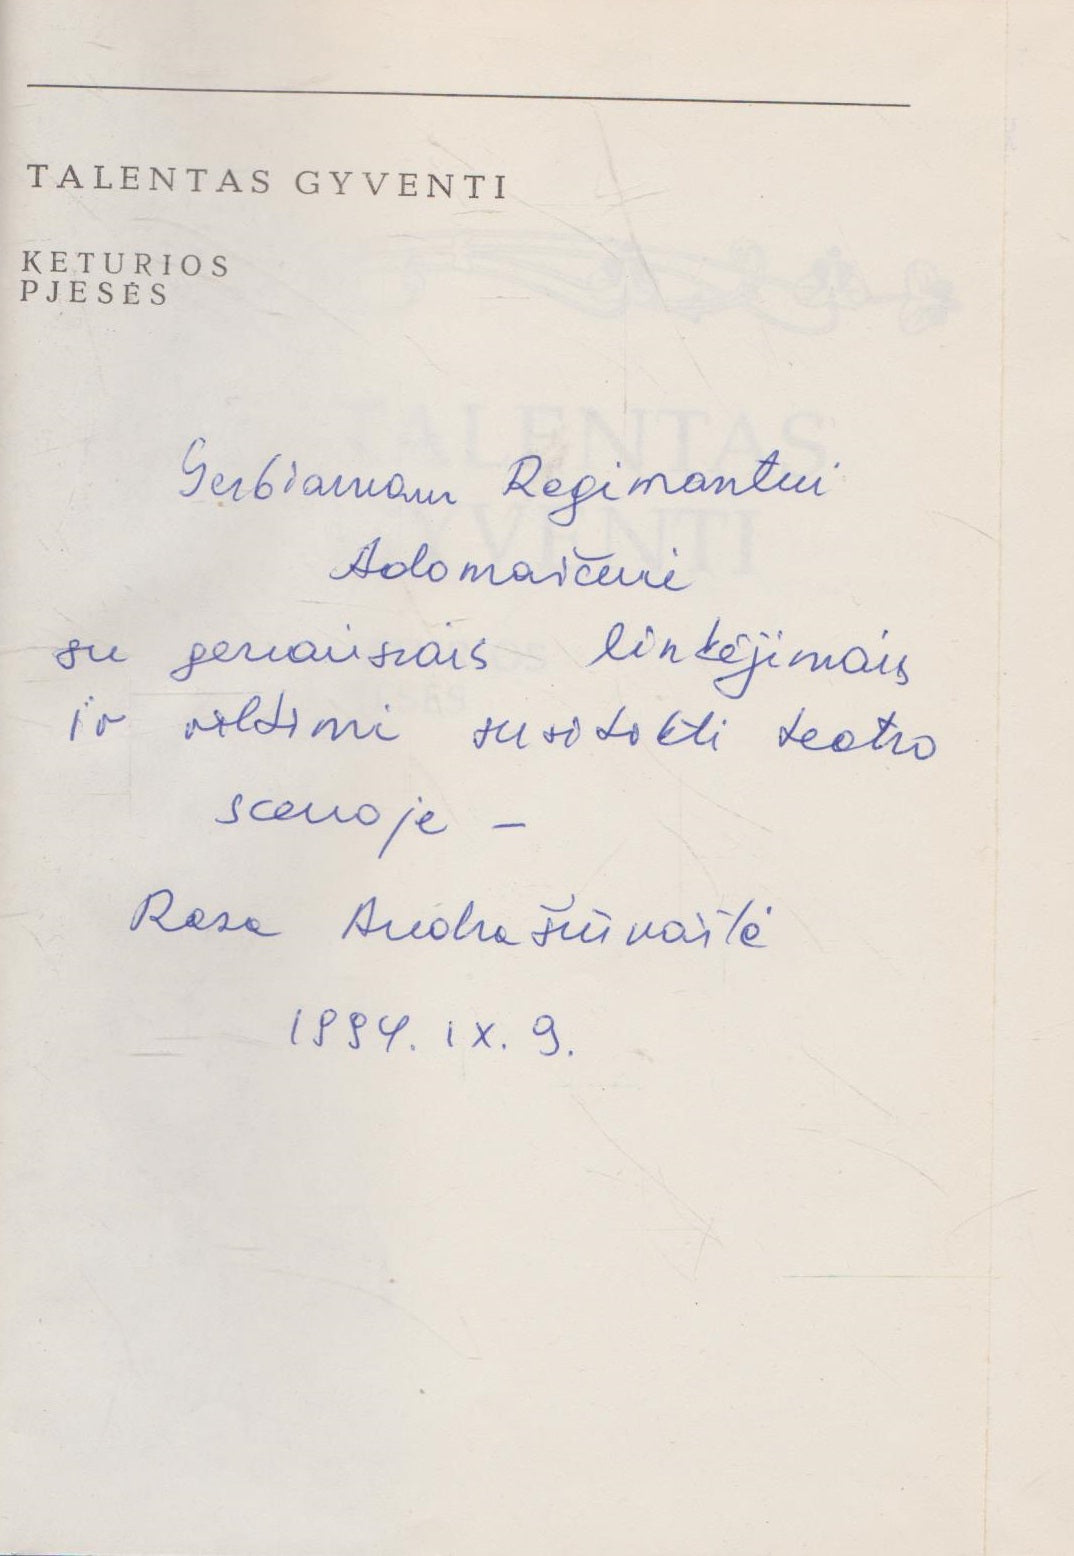 TALENTAS GYVENTI
KETURIOS
PJESĖS
Gerbiamam Regimantui
Adomaičiui
su geriausiais linkėjimais
ir viltimi susitikti teatro
scenoje –
Rasa Andrašiūnaitė
1994. IX. 9.